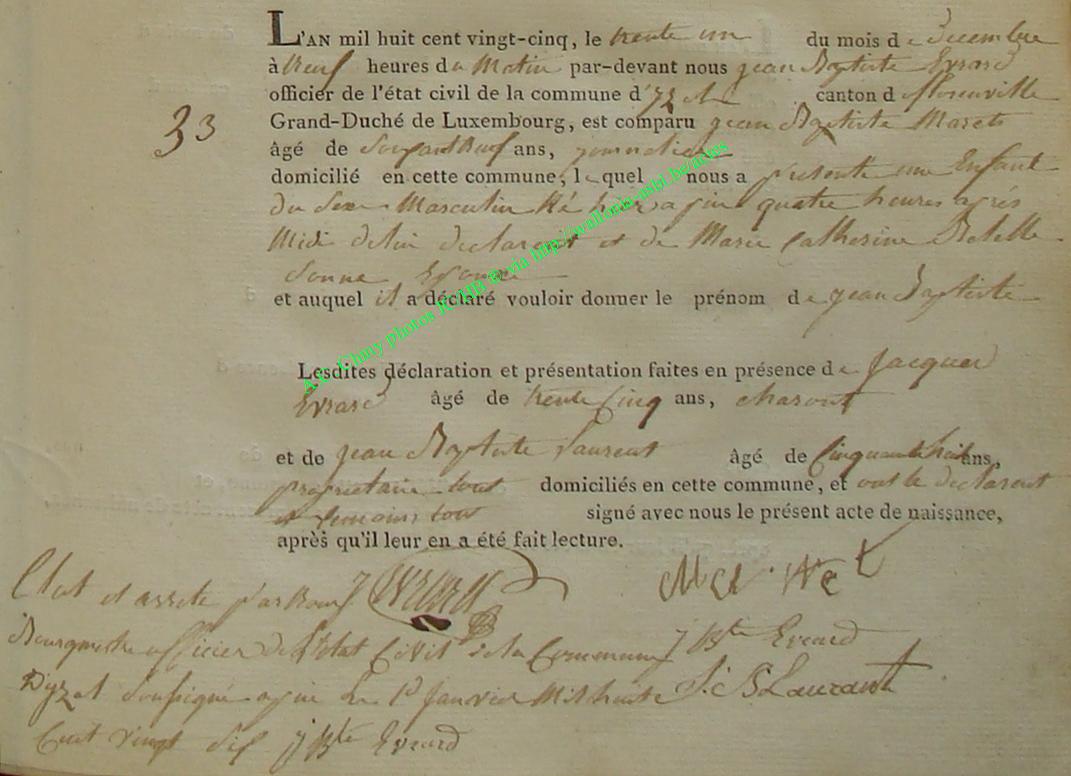 L'AN mil huit cent vingt-cinq, le trente un du mois de Decembre
à Neuf heures du Matin par-devant nous jean Baptiste Evrard
officier de l'état civil de la commune d'yzel canton d florenville
33
Grand-Duché de Luxembourg, est comparu jean Baptiste Marets
âgé de ans, journalier
domicilié en cette commune, lequel nous a présenté un Enfant
du Sexe Masculin Né hier a quatre heures après
Midi delui declarant et de Marie Catherine
Sonne Epouse
et auquel il a déclaré vouloir donner le prénom de jean Baptiste
A.E. Chiny photos via http://wallonia-asbl.be/actes
Lesdites déclaration et présentation faites en présence de Jacques
Evrard âgé de trente Cinq ans,
et de jean Baptiste Laurent âgé de Cinquante huit ans,
proprietaire tout domiciliés en cette commune, et ont le declarant
et temoins tout signé avec nous le présent acte de naissance,
après qu'il leur en a été fait lecture.
Clot et arreté par nous j Evrard
Bourgmestre officier de l'état Civil de la Commune j Bte Evrard
Dyzel Soussigné Le 1er Janvier Mil huite J. B Laurant
Cent vingt Six j Bte Evrard